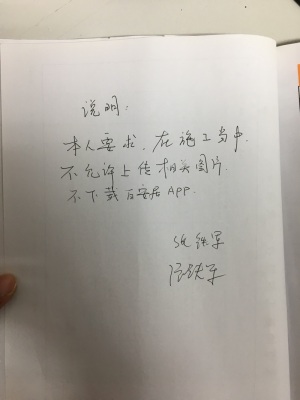 说明:
本人要求,在施工当中,
不允许上传相关图片.
不下载百安居APP.
铁军
铁军